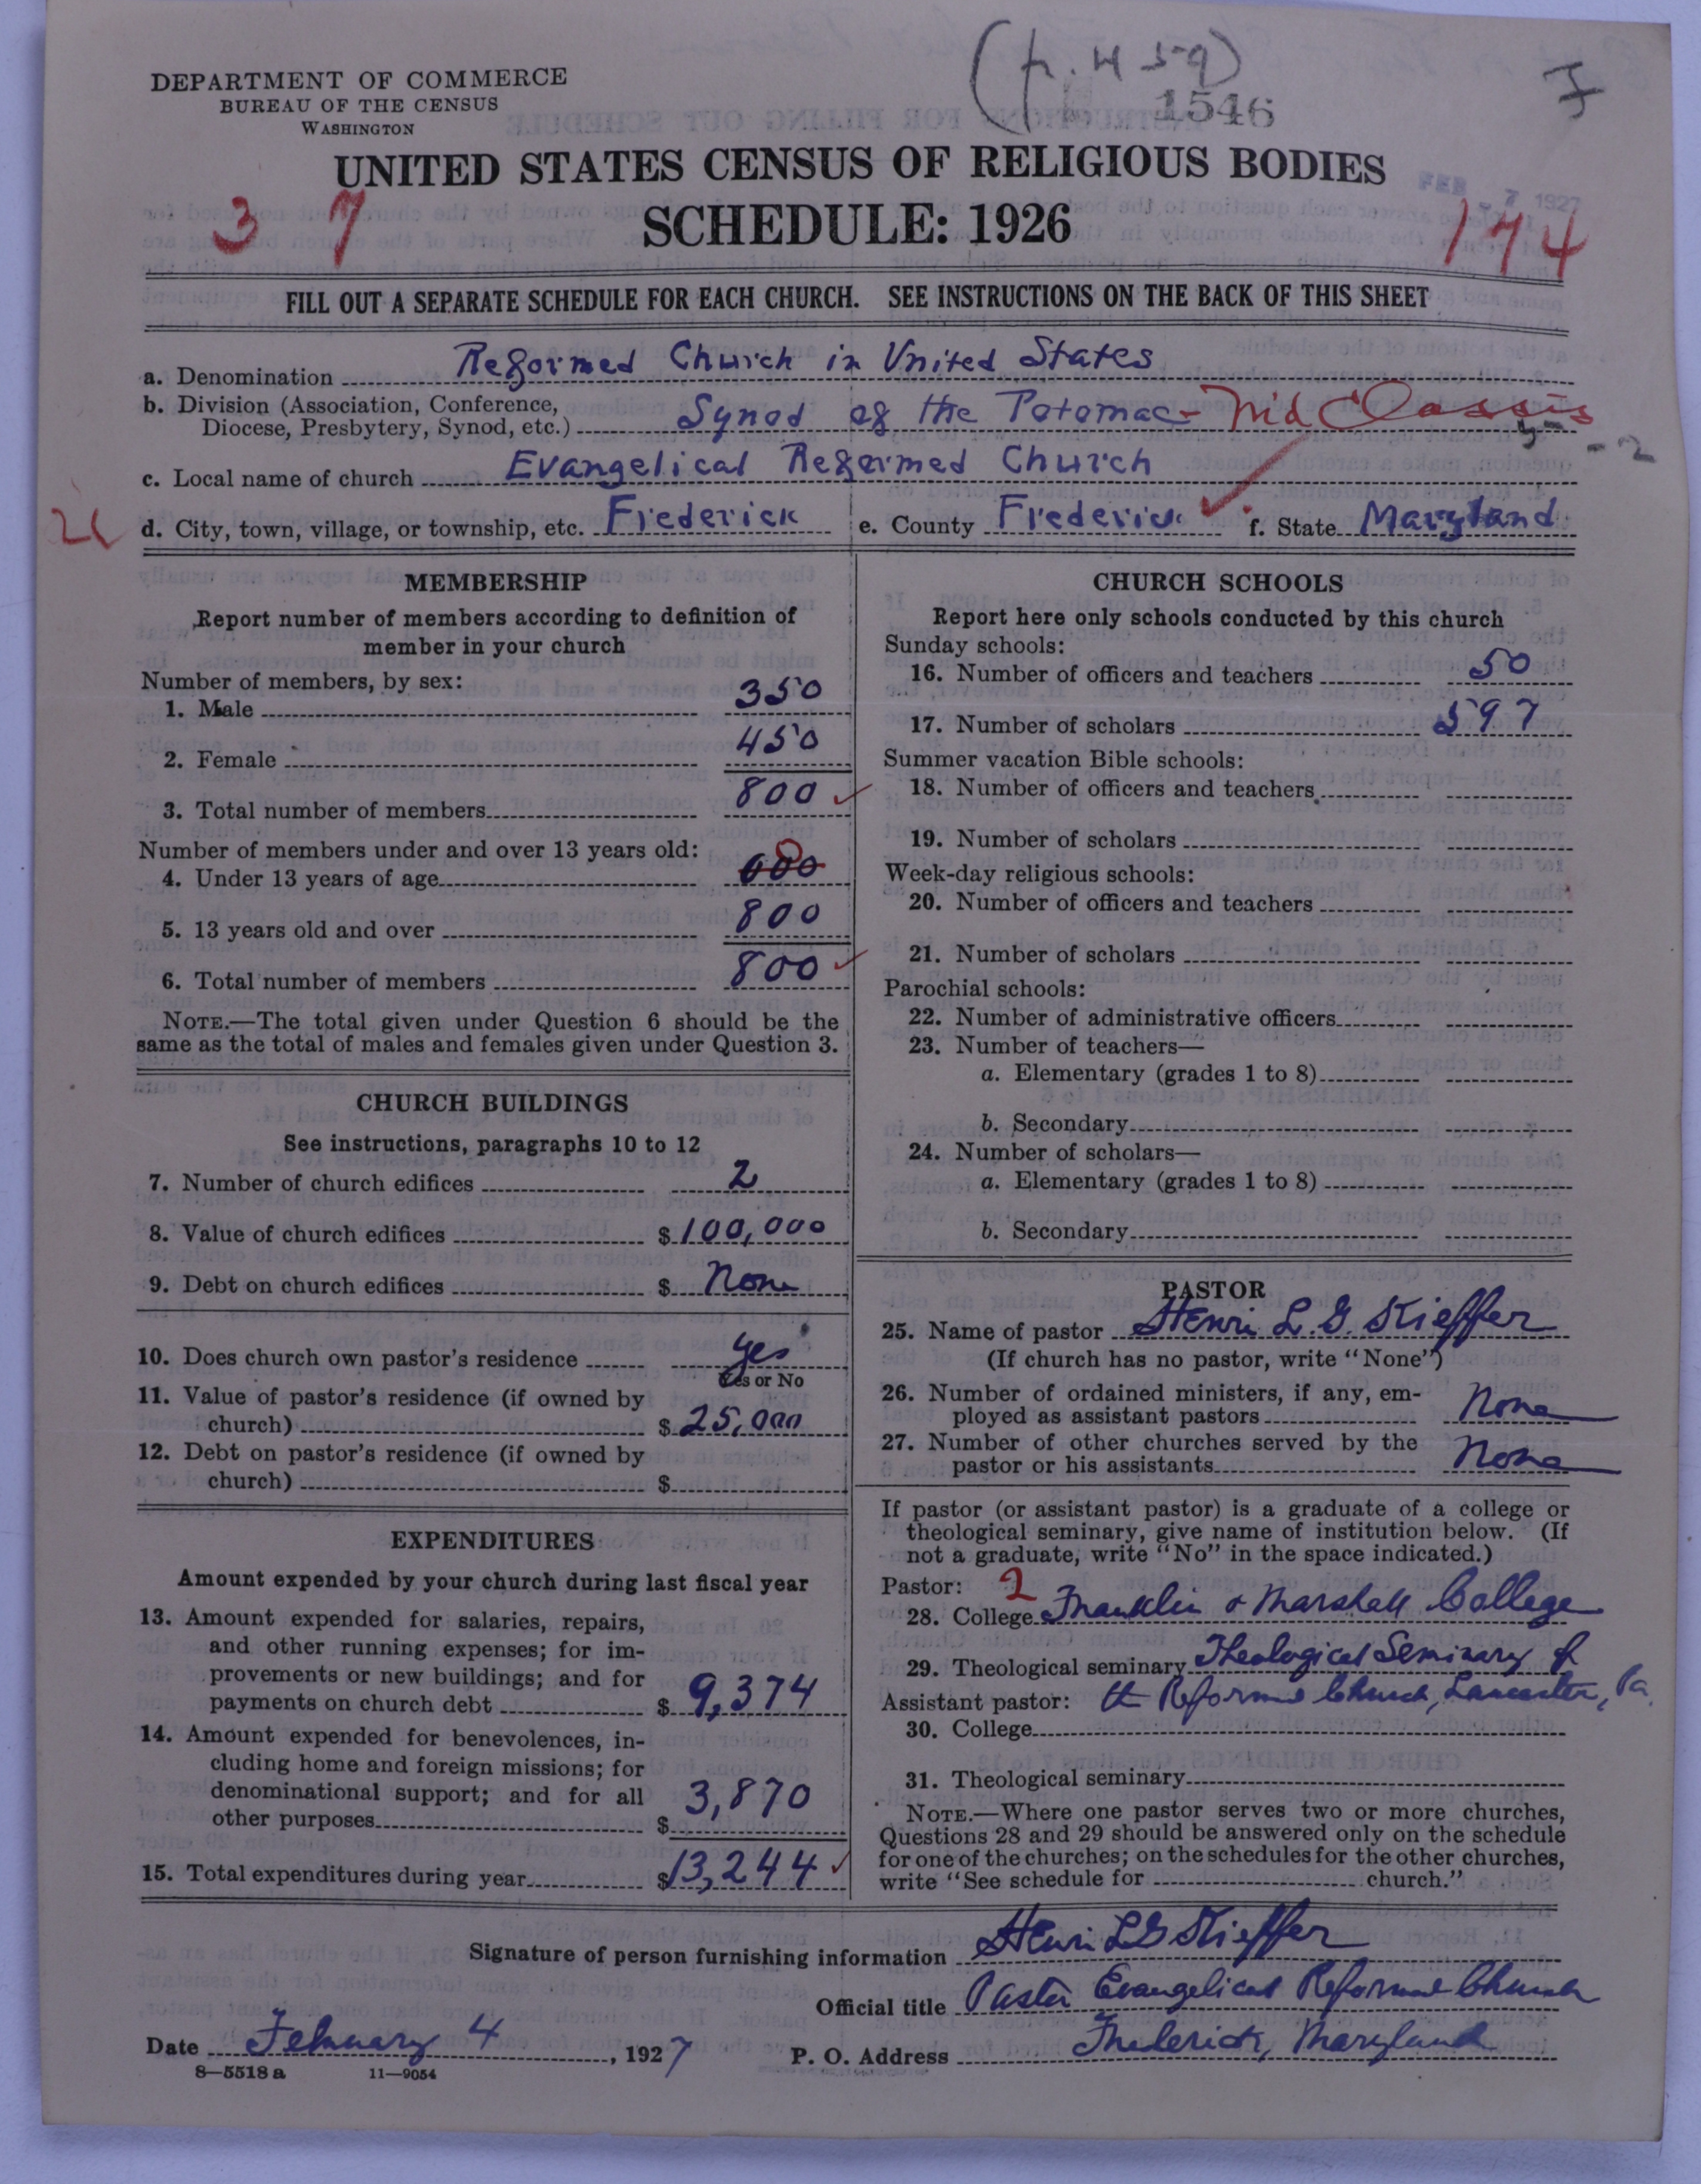 DEPARTMENT OF COMMERCE
BUREAU OF THE CENSUS
WASHINGTON
(p. 459)
1546
UNITED STATES CENSUS OF RELIGIOUS BODIES
FEB 7 1927
37
SCHEDULE: 1926
174
FILL OUT A SEPARATE SCHEDULE FOR EACH CHURCH. SEE INSTRUCTIONS ON THE BACK OF THIS SHEET
a. Denomination Reformed Church in United States
b. Division (Association, Conference,
Diocese, Presbytery, Synod, etc.) Synod of the Potomac - Md Classis
c. Local name of church Evangelical Reformed Church
d. City, town, village, or township, etc. Frederick e. County Frederick f. State Maryland
MEMBERSHIP
Report number of members according to definition of
member in your church
Number of members, by sex:
1. Male 350
2. Female 450
3. Total number of members 800
Number of members under and over 13 years old:
4. Under 13 years of age 000
5. 13 years old and over 800
6. Total number of members 800
NOTE.—The total given under Question 6 should be the
same as the total of males and females given under Question 3.
CHURCH BUILDINGS
See instructions, paragraphs 10 to 12
7. Number of church edifices 2
8. Value of church edifices $ 100,000
9. Debt on church edifices $ None
10. Does church own pastor's residence Yes
Yes or No
11. Value of pastor's residence (if owned by
church) $ 25,000
12. Debt on pastor's residence (if owned by
church) $
EXPENDITURES
Amount expended by your church during last fiscal year
13. Amount expended for salaries, repairs,
and other running expenses; for im-
provements or new buildings; and for
payments on church debt $ 9,374
14. Amount expended for benevolences, in-
cluding home and foreign missions; for
denominational support; and for all
other purposes $ 3,870
15. Total expenditures during year $ 13,244
CHURCH SCHOOLS
Report here only schools conducted by this church
Sunday schools:
16. Number of officers and teachers 50
17. Number of scholars 597
Summer vacation Bible schools:
18. Number of officers and teachers
19. Number of scholars
Week-day religious schools:
20. Number of officers and teachers
21. Number of scholars
Parochial schools:
22. Number of administrative officers
23. Number of teachers—
a. Elementary (grades 1 to 8)
b. Secondary
24. Number of scholars—
a. Elementary (grades 1 to 8)
b. Secondary
PASTOR
25. Name of pastor Henri L. G. Kieffer
(If church has no pastor, write "None")
26. Number of ordained ministers, if any, em-
ployed as assistant pastors None
27. Number of other churches served by the
pastor or his assistants None
If pastor (or assistant pastor) is a graduate of a college or
theological seminary, give name of institution below. (If
not a graduate, write "No" in the space indicated.)
Pastor: 2
28. College Franklin & Marshall College
29. Theological seminary Theological Seminary of
Assistant pastor: the Reformed Church, Lancaster, Pa.
30. College
31. Theological seminary
NOTE.—Where one pastor serves two or more churches,
Questions 28 and 29 should be answered only on the schedule
for one of the churches; on the schedules for the other churches,
write "See schedule for church."
Signature of person furnishing information Henri L G Kieffer
Official title Pastor Evangelical Reformed Church
Date February 4, 1927 P. O. Address Frederick, Maryland
8—5518 a 11—9054